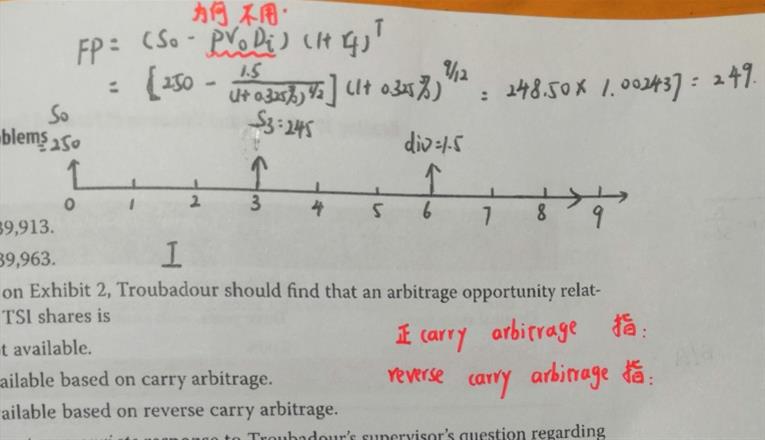 为何 不用.
FP = (S0 - PV0Di) (1+rf)^T
= [250 - 1.5/(1+0.325%)^6/12] (1+0.325%)^9/12 = 248.50 × 1.002437 = 249.
S0
S3=245
div=1.5
blems = 250
0 1 2 3 4 5 6 7 8 9
39,913.
39,963.
I
on Exhibit 2, Troubadour should find that an arbitrage opportunity relat-
TSI shares is
正 carry arbitrage 指:
t available.
reverse carry arbitrage 指:
ailable based on carry arbitrage.
ailable based on reverse carry arbitrage.
response to Troubadour's supervisor's question regarding